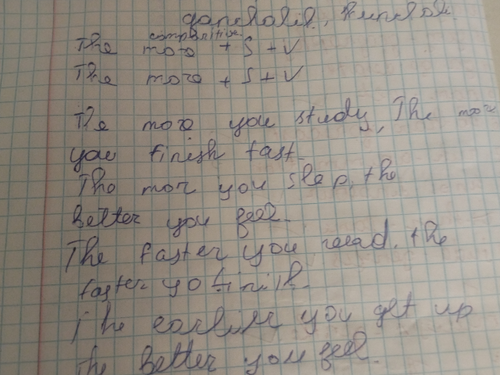 comparative
The more + S + V
The more + S + V
The more you study, The more
you finish fast.
The mor you slep, the
better you feel.
The faster you read, the
faster yo finish.
The earlier you get up
the better you feel.